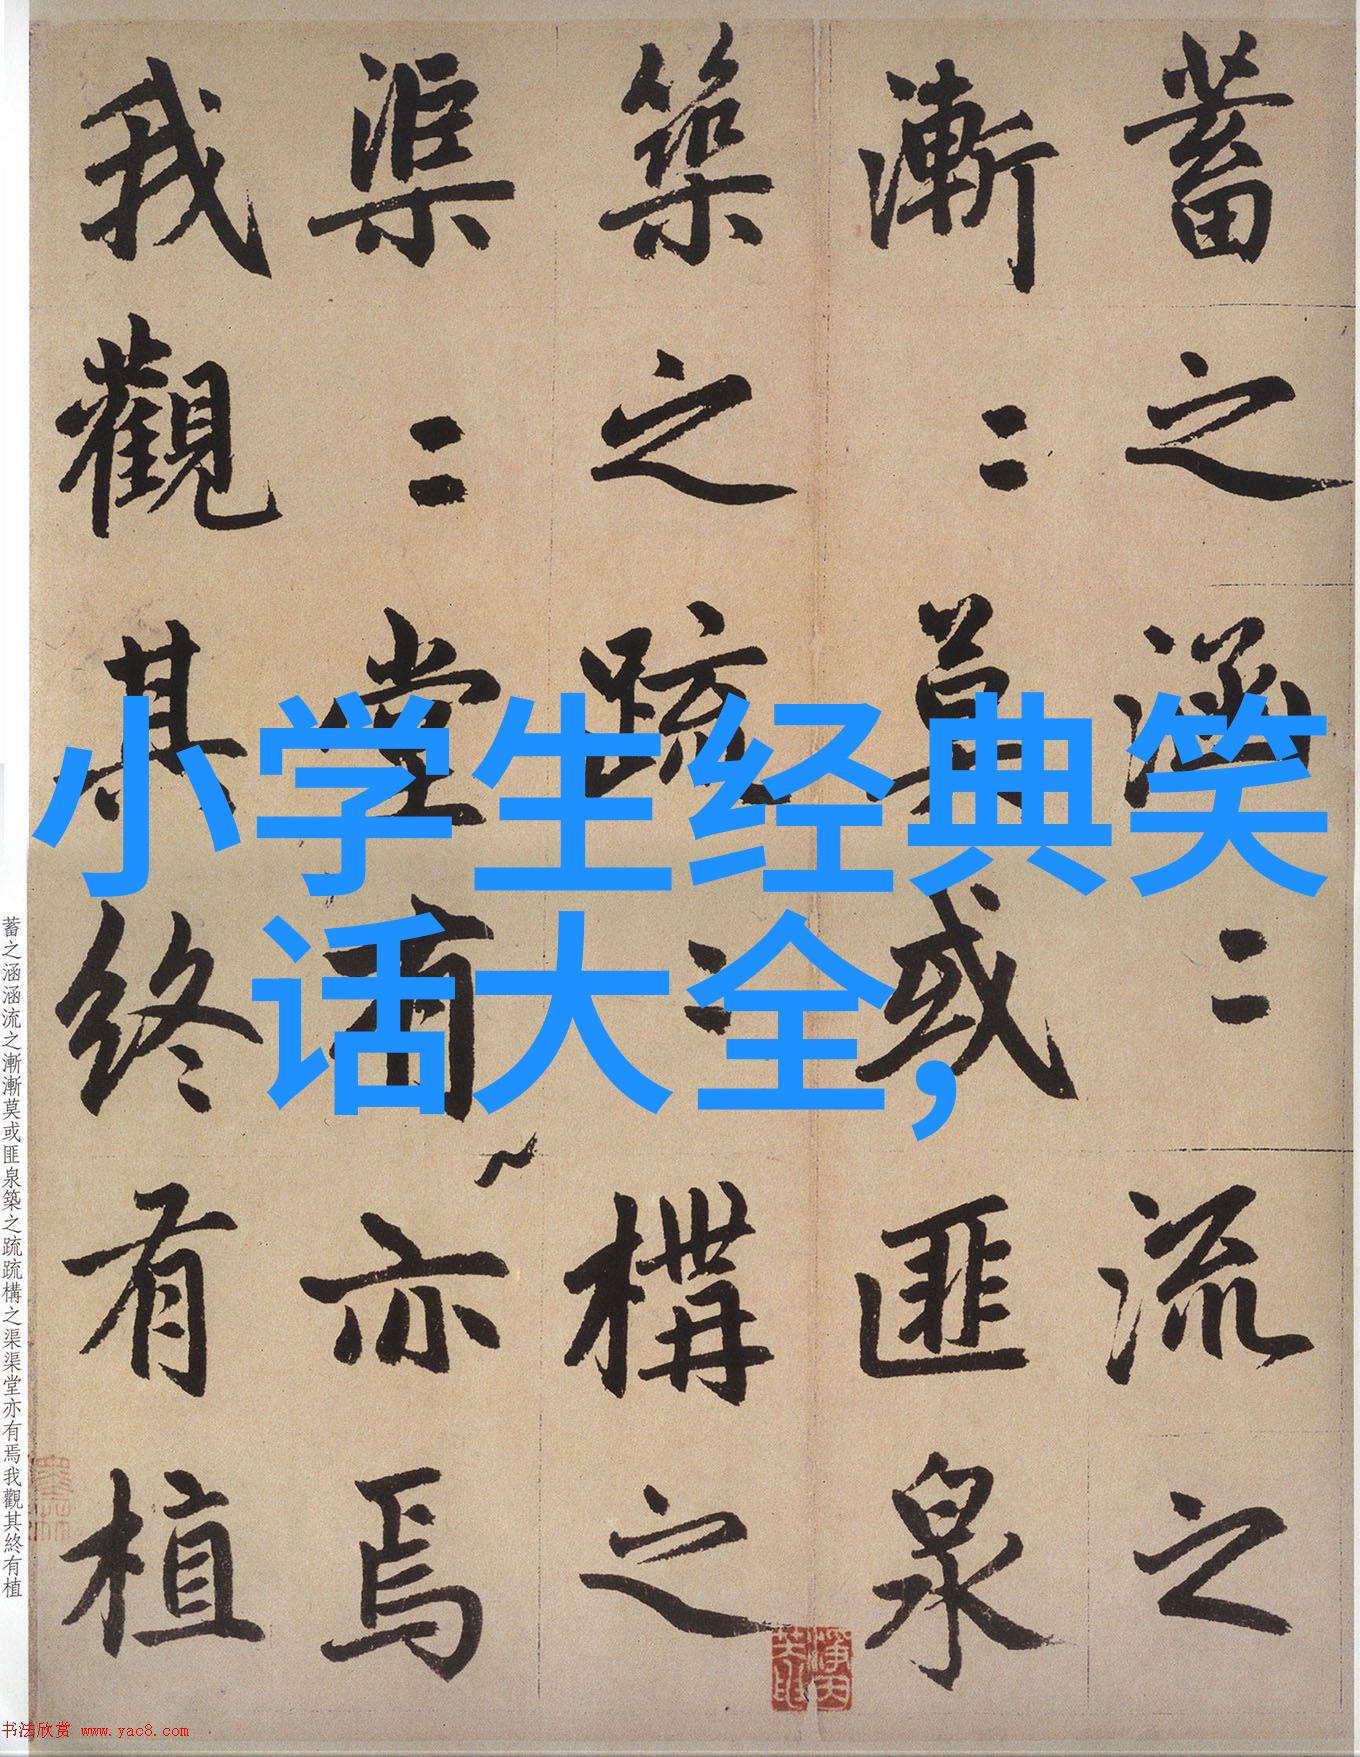 蓄之涵〻流之
漸〻莫或匪泉
築之疏〻構之
渠〻堂有亦焉
我觀其終有植
小学生经典笑
话大全,
蓄之涵涵流之漸漸莫或匪泉築之疏疏構之渠渠堂亦有焉我觀其終有植
书法欣赏 www.yac8.com